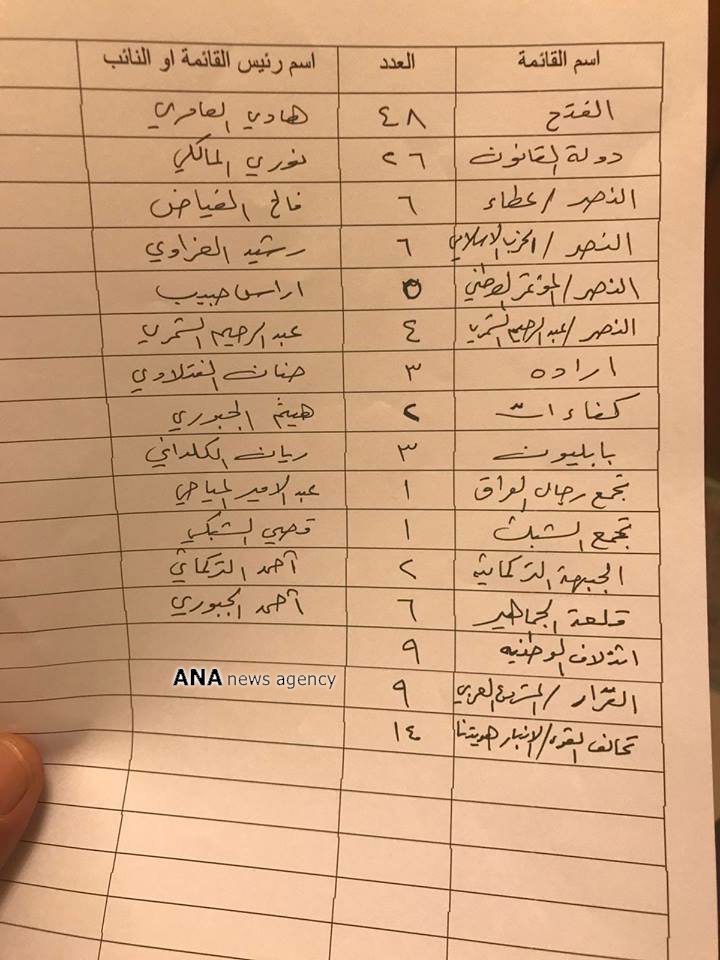 اسم القائمة العدد اسم رئيس القائمة او النائب
الفتح ٤٨ هادي العامري
دولة القانون ٢٦ نوري المالكي
النصر / عطاء ٦ فالح الفياض
النصر / الحزب الاسلامي ٦ رشيد العزاوي
النصر / المؤتمر الوطني ٥ اراس حبيب
النصر / عبد الرحيم الشمري ٤ عبد الرحيم الشمري
اراده ٣ حنان الفتلاوي
كفاءات ٢ هيثم الجبوري
بابليون ٣ ريان الكلداني
تجمع رجال العراق ١ عبد الامير المياحي
تجمع الشبك ١ قصي الشبكي
الجبهة التركمانيه ٢ احمد التركماني
قلعة الجماهير ٦ احمد الجبوري
ائتلاف الوطنيه ٩
ANA news agency
القرار / المشروع العربي ٩
تحالف القوى / الانبار هويتنا ١٤